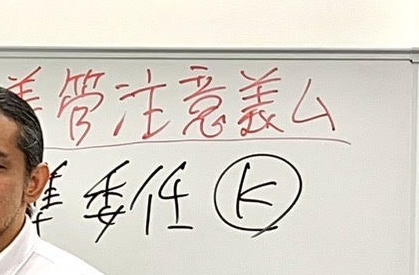 善管注意義ム
準委任 Ⓚ